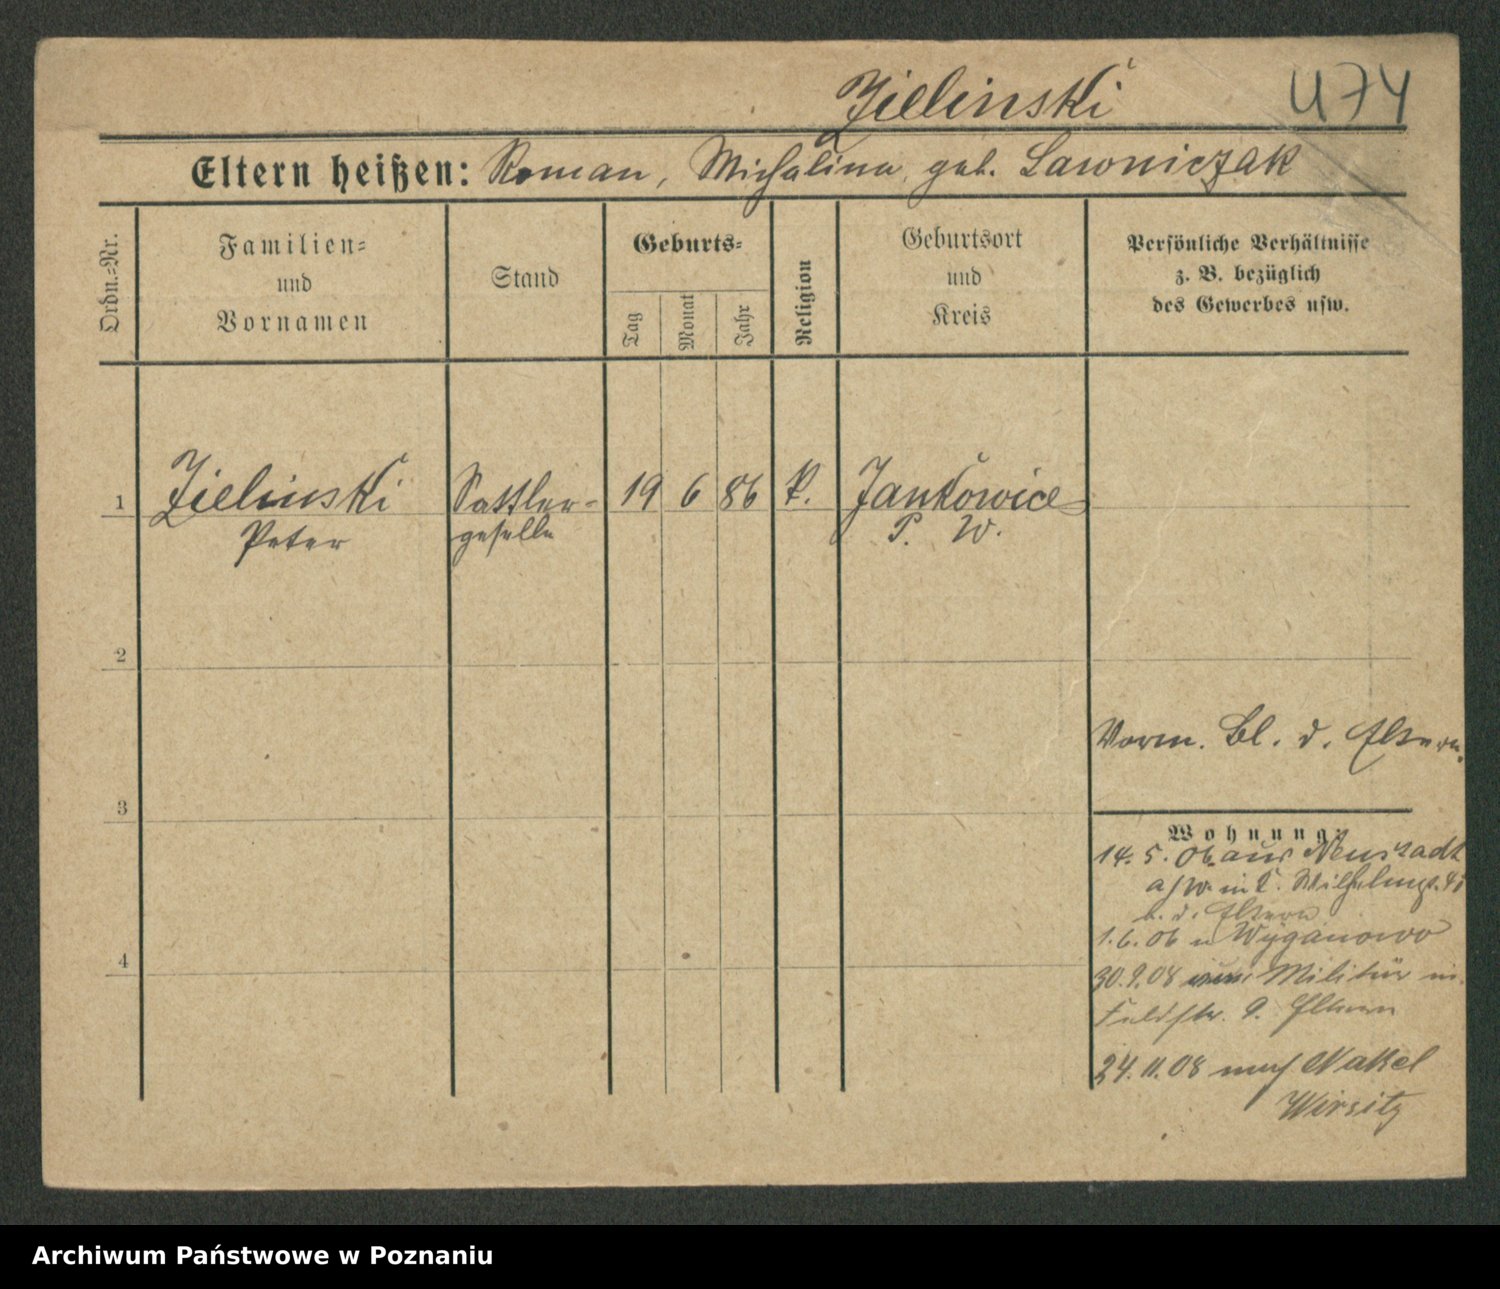 Zielinski U74
Eltern heißen: Roman, Michalina, geb. Lawniczak
Ordn.=Nr.
Familien=
und
Vornamen
Stand
Geburts=
Tag
Monat
Jahr
Religion
Geburtsort
und
Kreis
Persönliche Verhältnisse
z. B. bezüglich
des Gewerbes usw.
1 Zielinski Sattler= 19 6 86 k. Jankowice
Peter geselle P. W.
2
Vorm. Bl. d. Eltern.
3
Wohnung:
14. 5. 06 aus Neustadt
a/W. in Wilhelmpl.
b. d. Eltern
1.6.06 n Wyganowo
30.9.08 vom Militär in
Feldstr. 9. Eltern
4
24.11.08 nach Nakel
Wirsitz
Archiwum Państwowe w Poznaniu